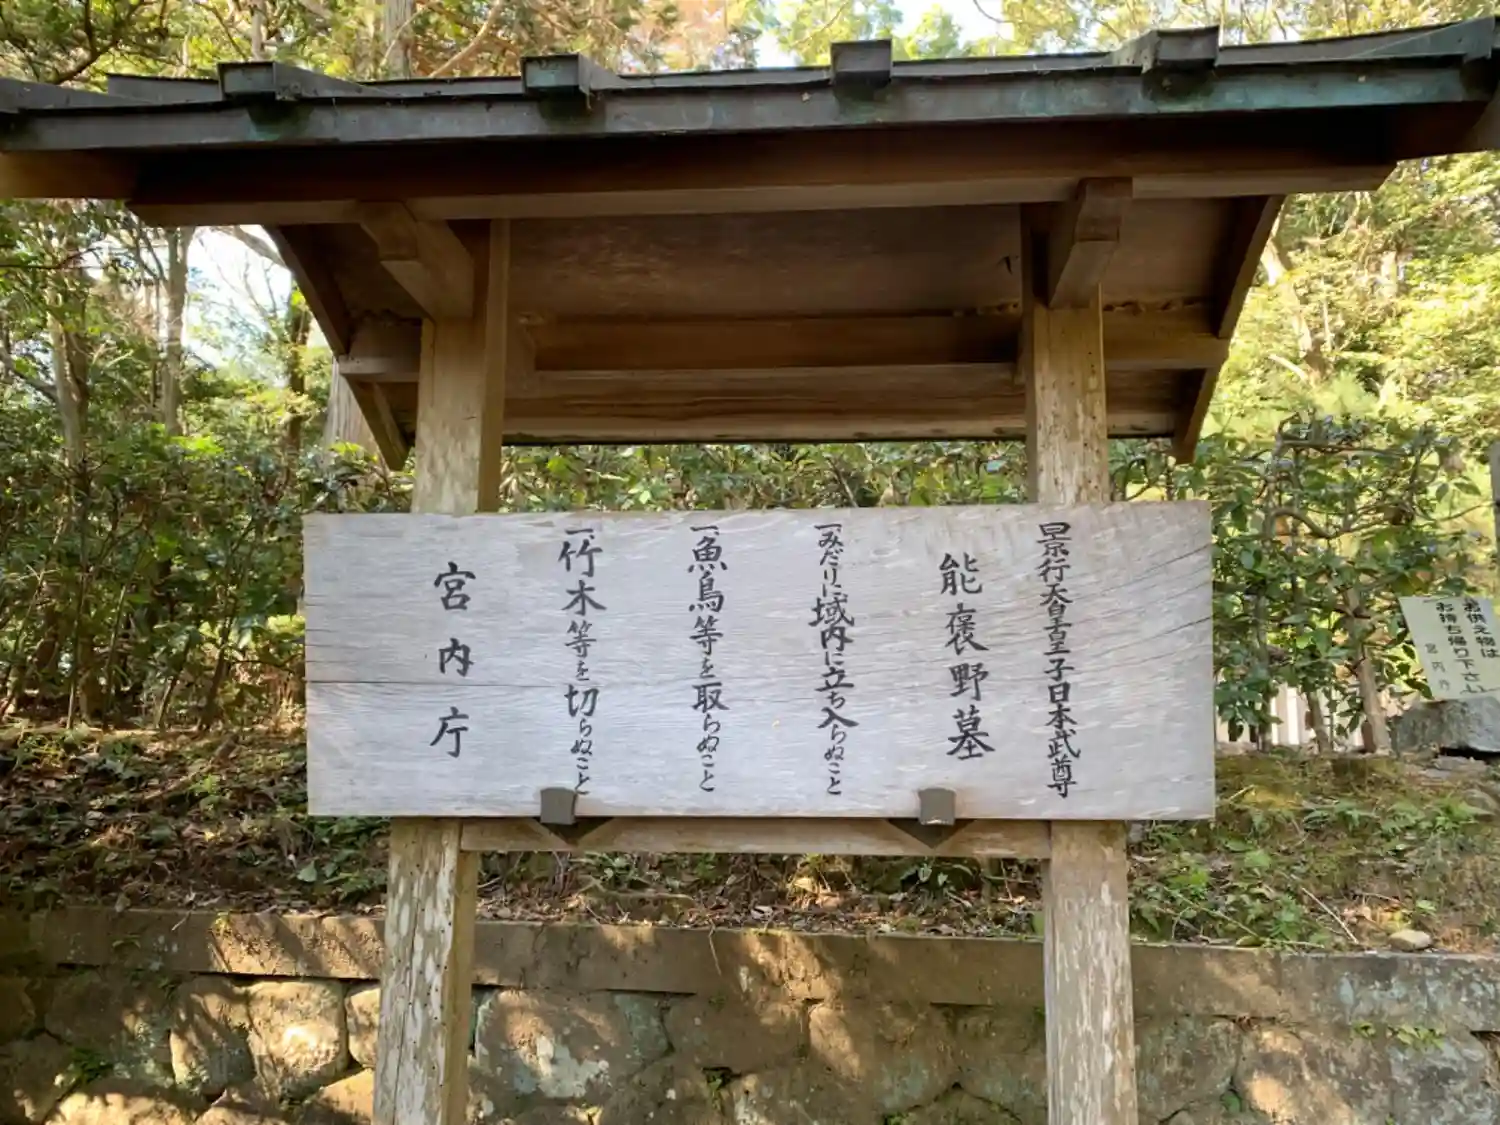 景行天皇皇子日本武尊
能褒野墓
一、みだりに域内に立ち入らぬこと
一、魚鳥等を取らぬこと
一、竹木等を切らぬこと
宮内庁
お供え物は
お持ち帰り下さい
宮内庁